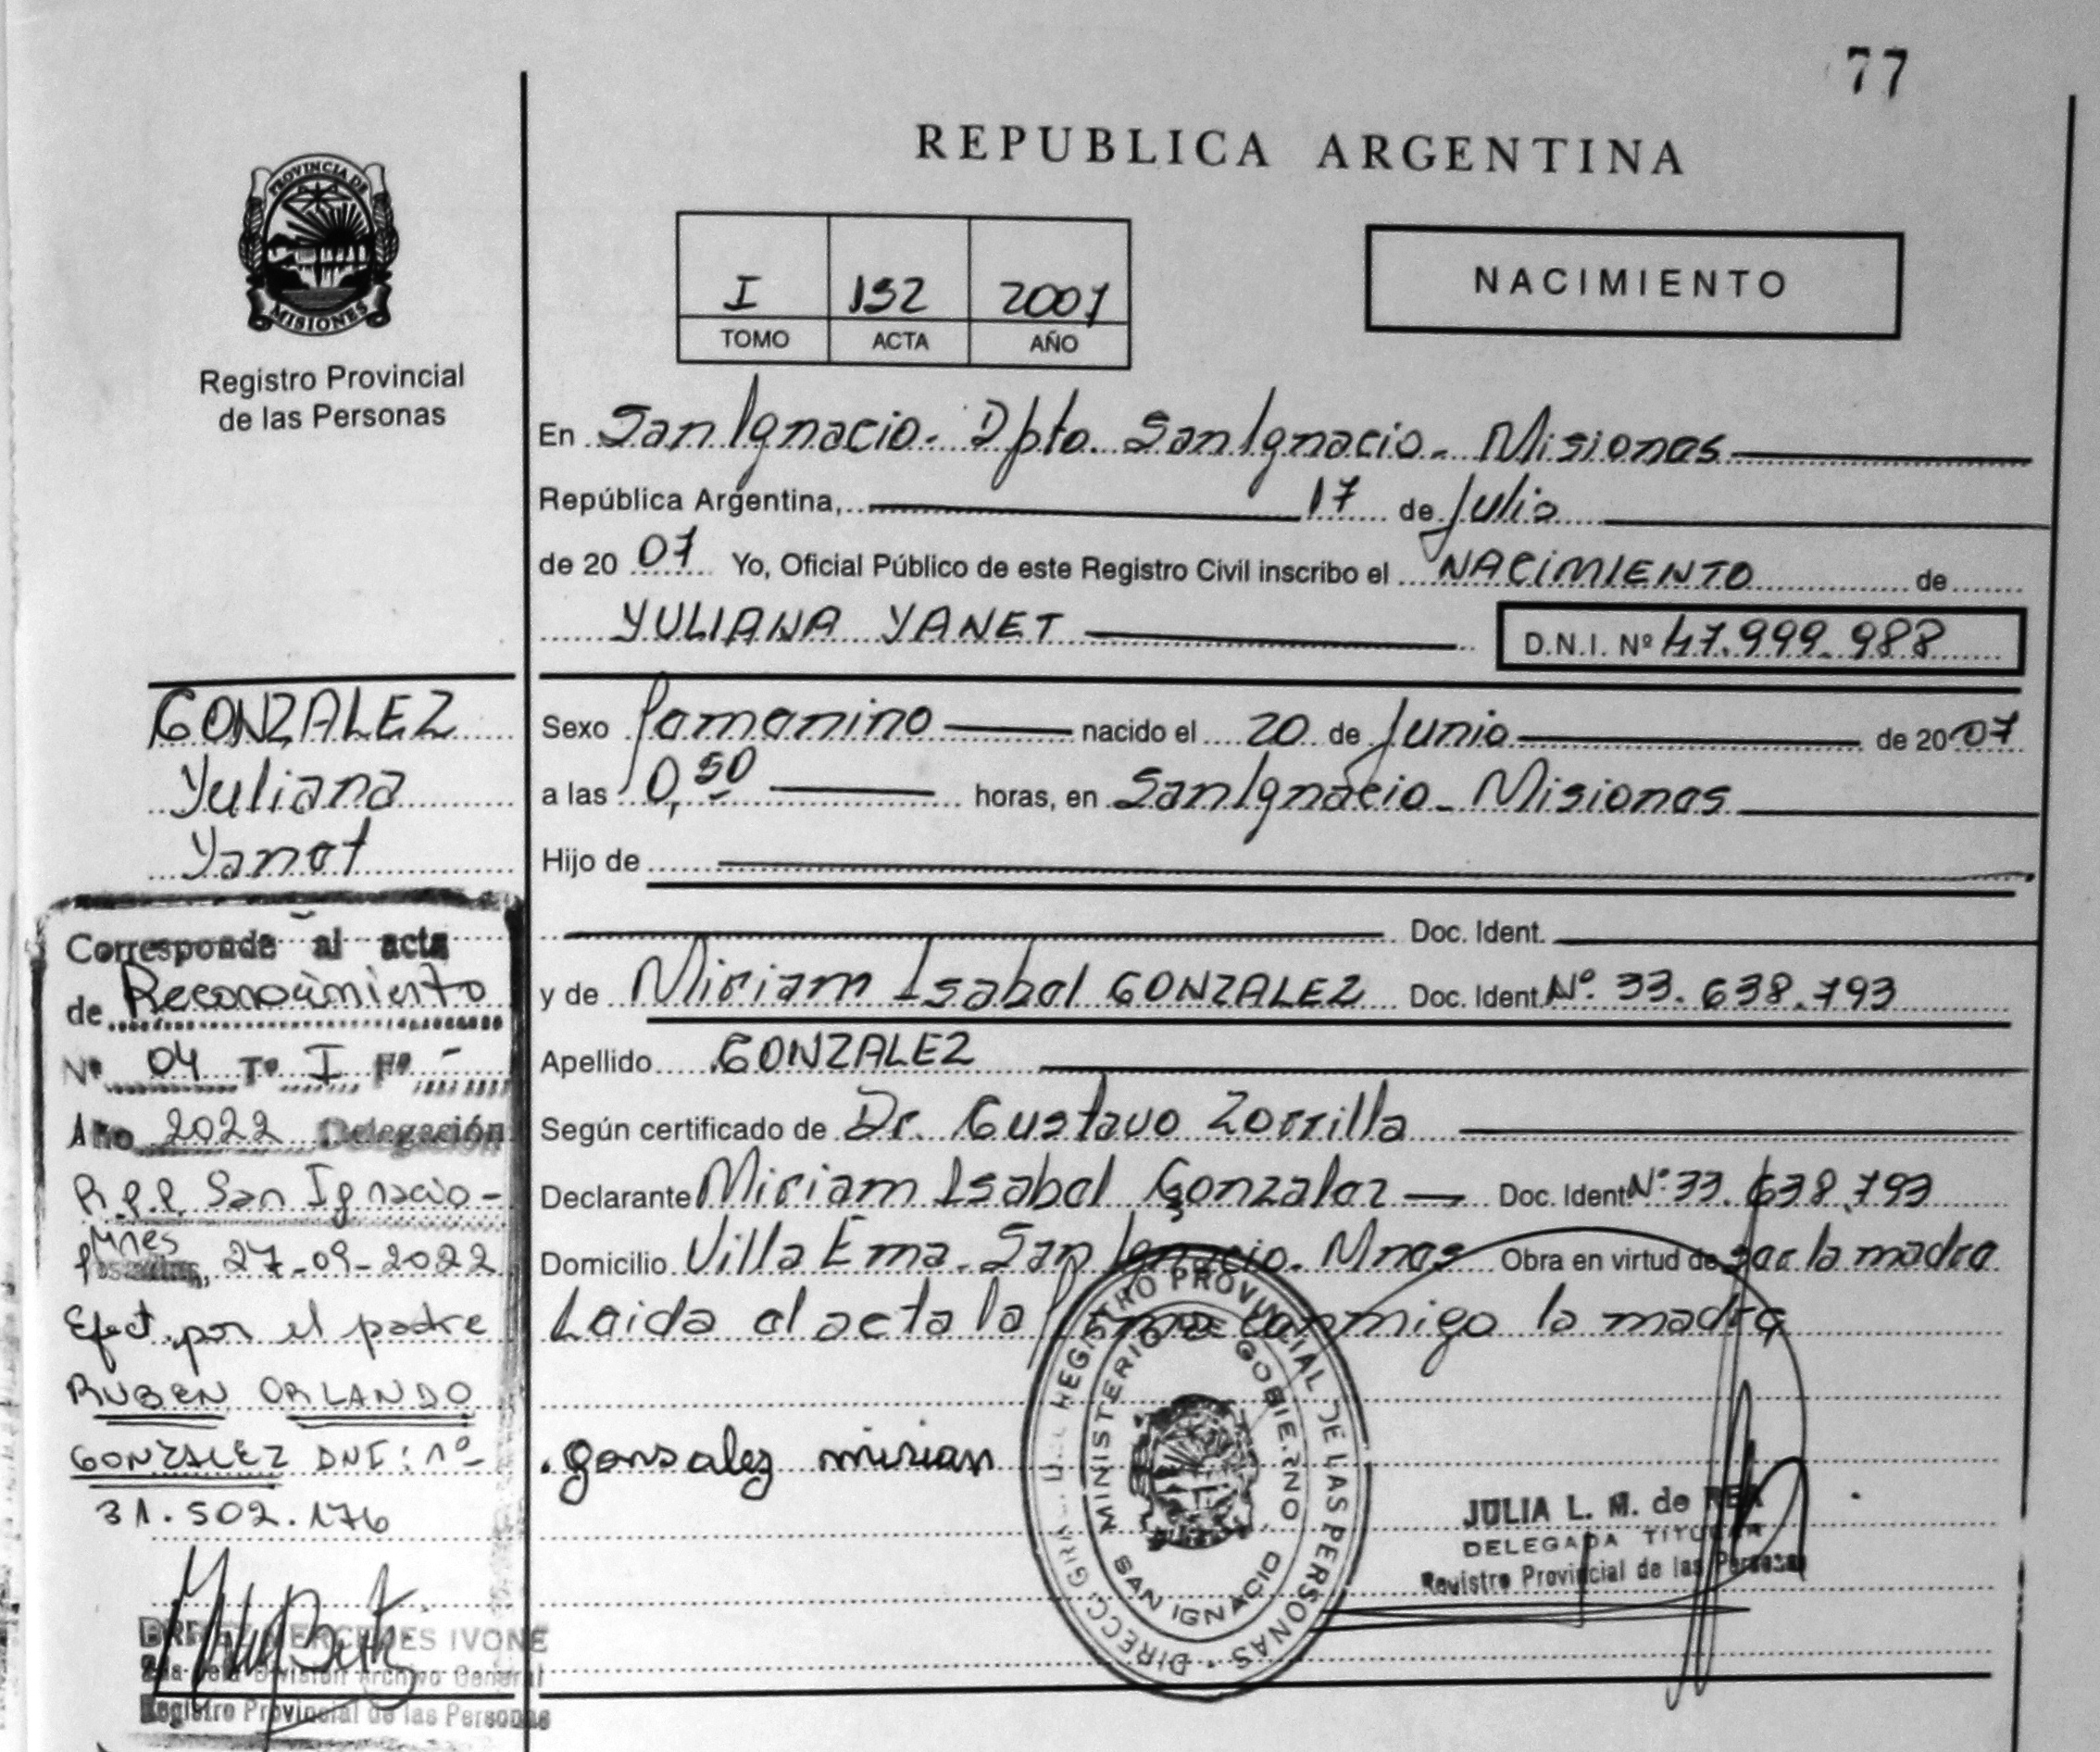 77
REPUBLICA ARGENTINA
PROVINCIA DE
MISIONES
Registro Provincial
de las Personas
I 152 2007
TOMO ACTA AÑO
NACIMIENTO
En San Ignacio. Dpto. San Ignacio. Misiones
República Argentina, 17 de Julio
de 20 07 Yo, Oficial Público de este Registro Civil inscribo el NACIMIENTO de
YULIANA YANET D.N.I. Nº 47.999.988
Sexo femenino nacido el 20 de Junio de 20 07
a las 0,50 horas, en San Ignacio - Misiones
Hijo de
Doc. Ident.
y de Miriam Isabel GONZALEZ Doc. Ident. Nº. 33.638.793
Apellido GONZALEZ
Según certificado de Dr. Gustavo Zorrilla
Declarante Miriam Isabel Gonzalez Doc. Ident. Nº: 33.638.793
Domicilio Villa Ema. San Ignacio. Mnes Obra en virtud de ser la madre
Leida el acta la firma conmigo la madre
gonsalez mirian
DIRECC. GRAL. DEL REGISTRO PROVINCIAL DE LAS PERSONAS
MINISTERIO DE GOBIERNO
SAN IGNACIO
JULIA L. M. de REA
DELEGADA TITULAR
Registro Provincial de las Personas
GONZALEZ
Yuliana
Yanet
Corresponde al acta
de Reconocimiento
Nº 04 Tº I Fº -
Año 2022 Delegación
R.P.P. San Ignacio -
Mnes
Posadas, 27-09-2022
Efect. por el padre
RUBEN ORLANDO
GONZALEZ DNI: Nº
31.502.176
MERCEDES IVONE
División Archivo General
Registro Provincial de las Personas